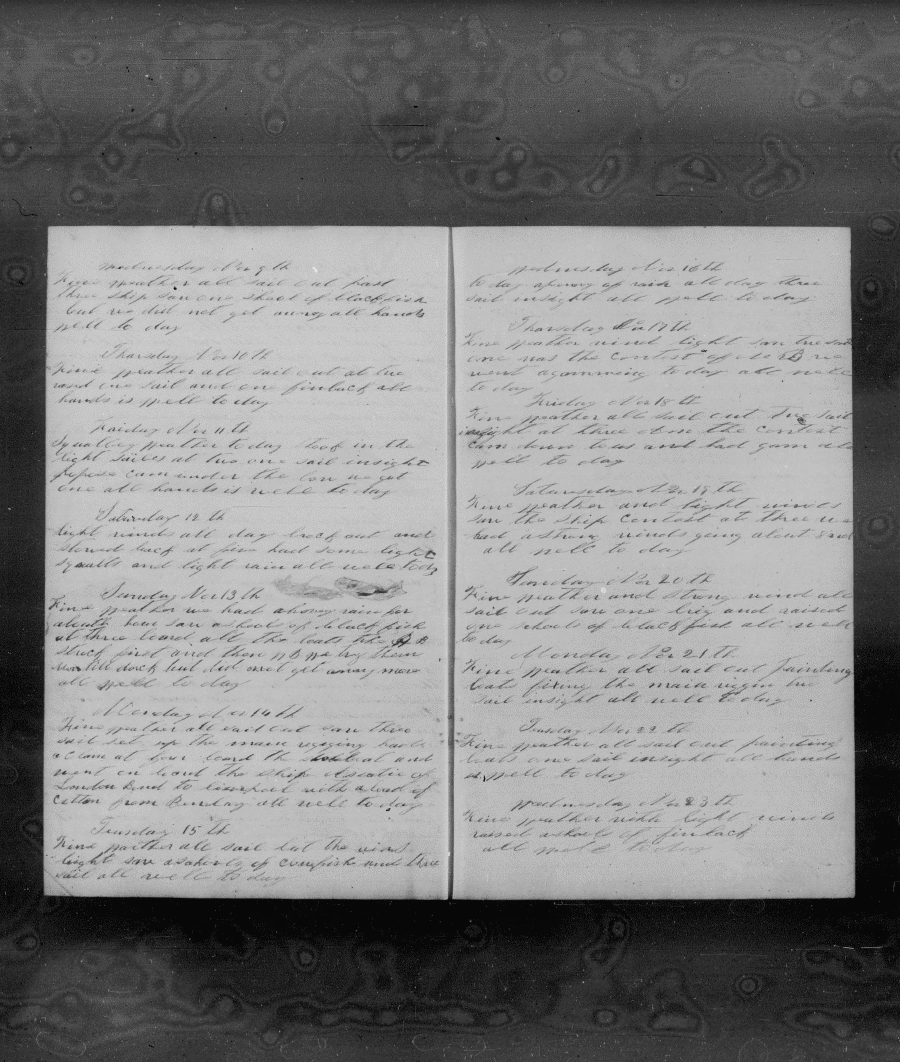 Wednesday Nov 9th
Fine weather all sail out past
three ship saw one shoel of blackfish
but we did not get away all hands
well to day
Thursday Nov 10th
Fine weather all sail out at
one sail and one finback all
hands is well to day
Friday Nov 11th
Squalley weather to day took in the
light sailes at two one sail insight
cam under the bow we got
one all hands is well to day
Saturday 12th
Light winds all day brock out and
stowed back at five had some light
squalls and light rain all well to day
Sunday Nov 13th
Fine weather we had a hevey rain for
hour saw a shoels of black fish
at three loard all the boats the B
struck first and then
but did not get away more
all well to day
Monday Nov 14th
Fine weather all sail out saw three
sail set up the main regging back
at four loard the boat and
went on board the ship Asiatic of
London Bond to liverpool with a load of
Cotton from Bombay all well to day
Tuesday 15th
Fine wether all sail out the wind
light saw a shoels of cowfish and three
sail all well to day
Wednesday Nov 16th
to day of rain all day three
sail insight all well to day
Thursday Nov 17th
Fine weather wind light saw two sail
one was the Contest of N B we
went agamming to day all well
to day
Friday Nov 18th
Fine weather all sail out two sail
insight at three the Contest
cam down to us and had gam all
well to day
Saturday Nov 19th
Fine weather and light winds
saw the ship Contest at three we
had a strong winds going about
all well to day
Sunday Nov 20th
Fine weather and strong wind all
sail out saw one brig and raised
one shoels of black fish all well
to day
Monday Nov 21th
Fine weather all sail out painting
boats fixing the main
sail insight all well to day
Tuesday Nov 22th
Fine weather all sail out painting
boats one sail insight all hands
is well to day
Wednesday Nov 23th
Fine weather with light winds
raised a shoels of finback
all well to day